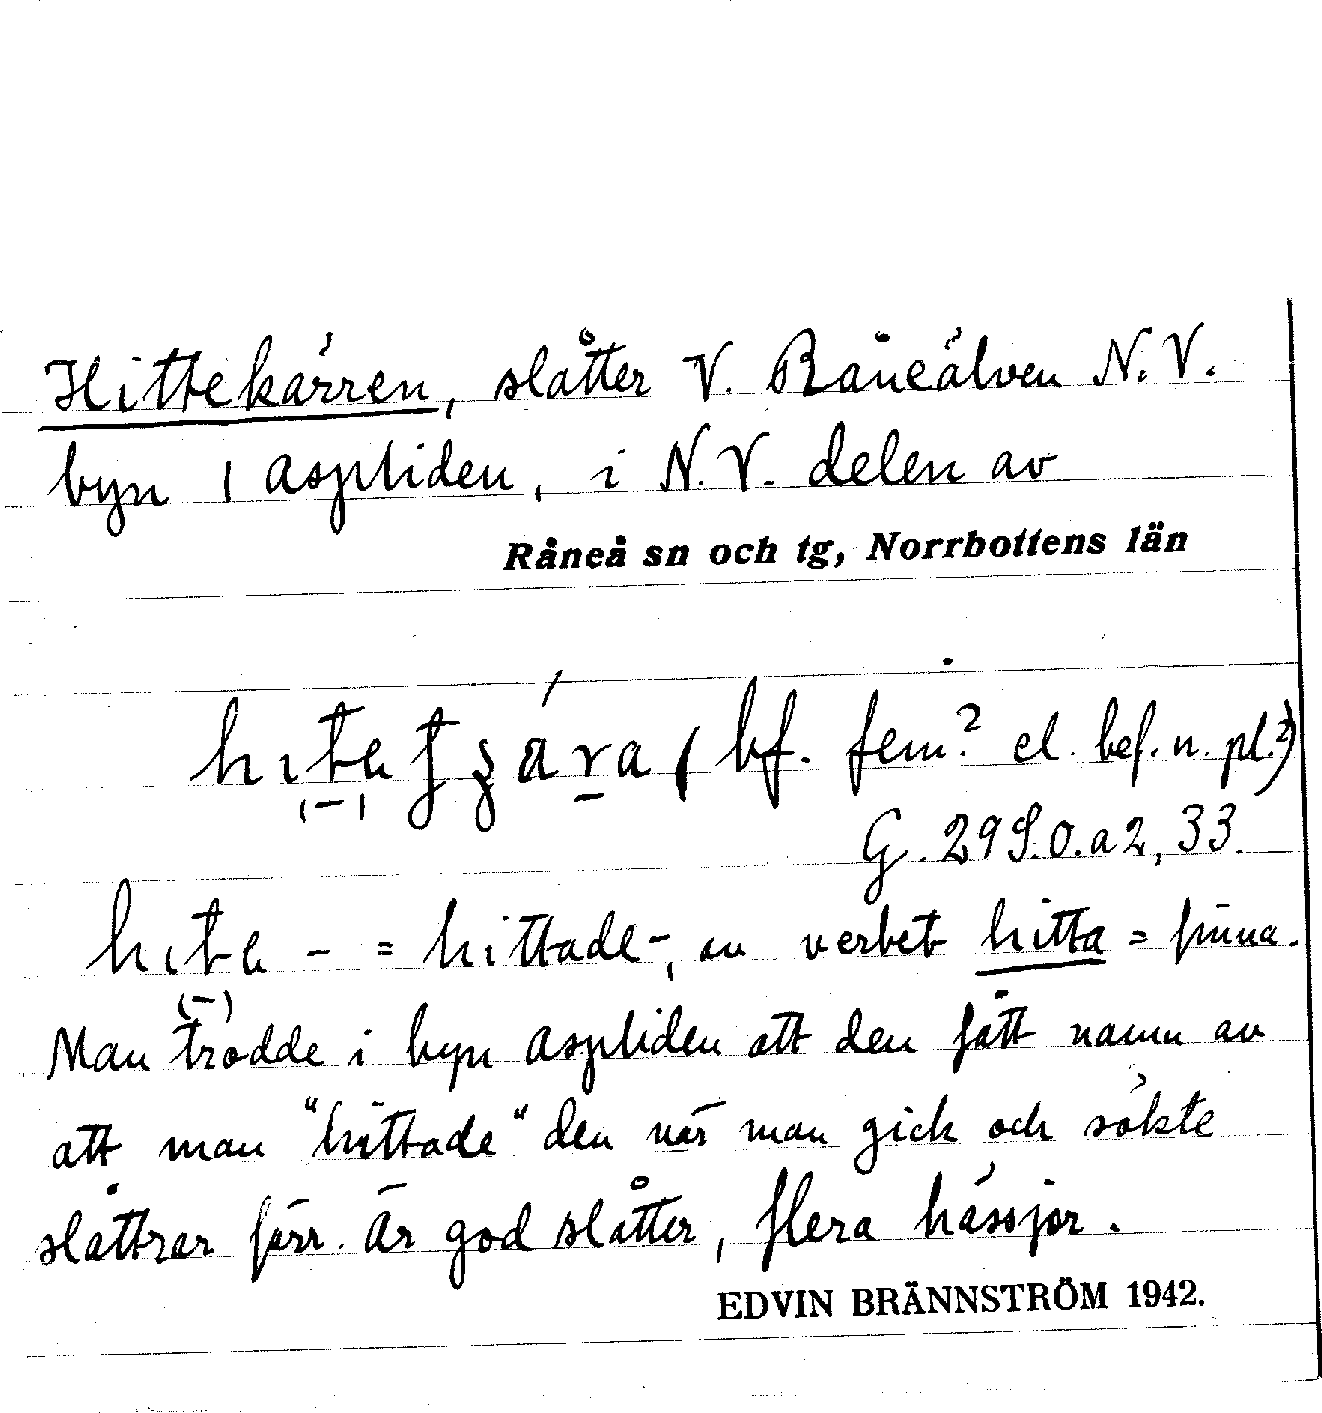 Hittekärren, slåtter V. Råneälven N.V.
byn 1 Aspliden, i N.V. delen av
Råneå sn och tg, Norrbottens län
(bf. fem? el. bef. n. pl.?)
G. 29 S.O. a 2, 33.
= hittade-, av verbet hitta = finna.
Man trodde i byn Aspliden att den fått namn av
att man "hittade" den när man gick och sökte
slåttrar förr. Är god slåtter, flera hässjor.
EDVIN BRÄNNSTRÖM 1942.